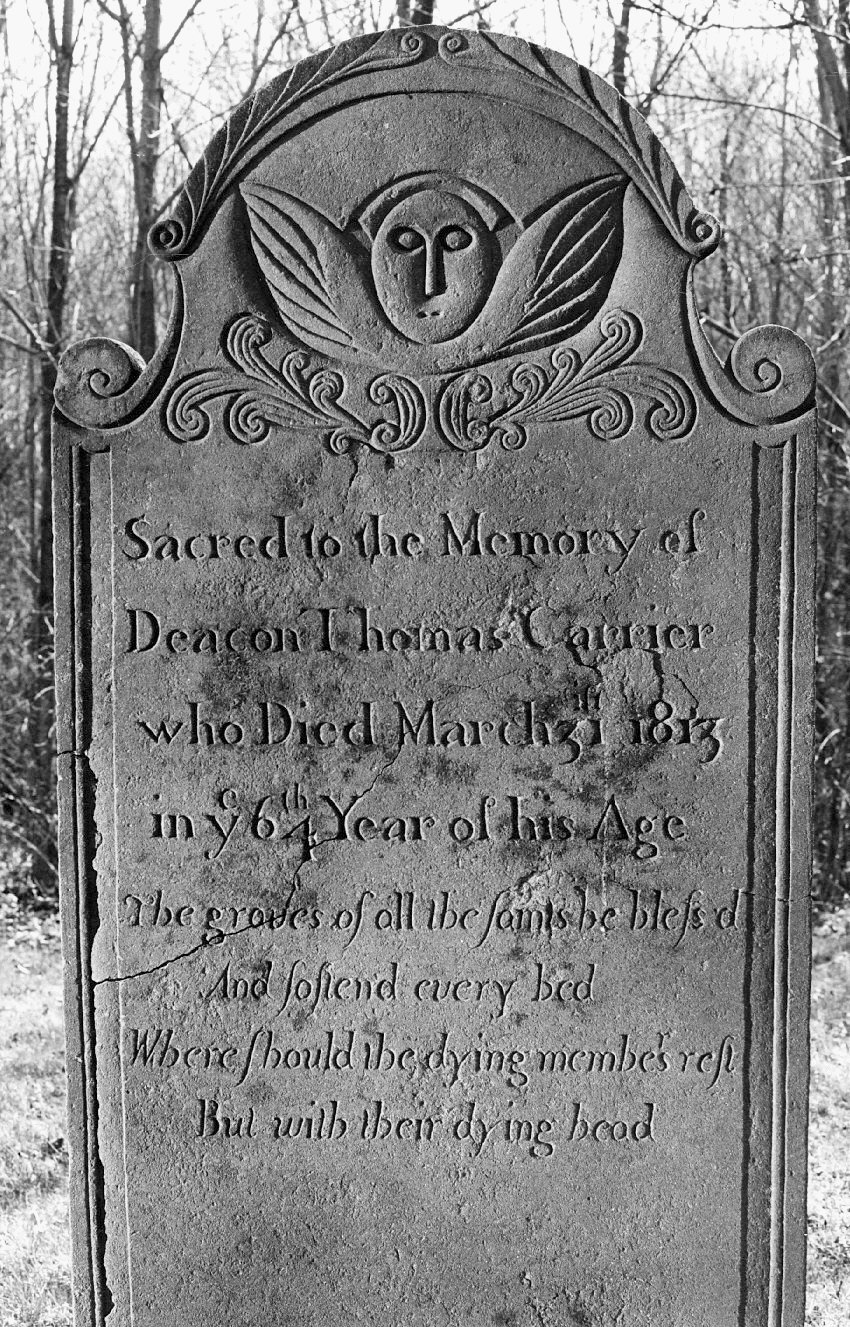 Sacred to the Memory of
Deacon Thomas Carrier
who Died March 31ſt 1813
in yᵉ 64th Year of his Age
The graves of all the ſaints he bleſs'd
And ſoftend every bed
Where ſhould the dying membeʳs reſt
But with their dying head